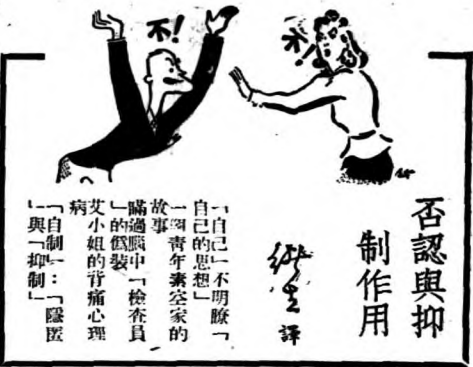 不!
不!
否認與抑
制作用
譯
「自己」不明瞭「
自己的思想」
一個青年素空家的
故事
瞞過腦中「檢查員
」的僞裝
艾小姐的背痛心理
病
「自制」:「隱匿
」與「抑制」